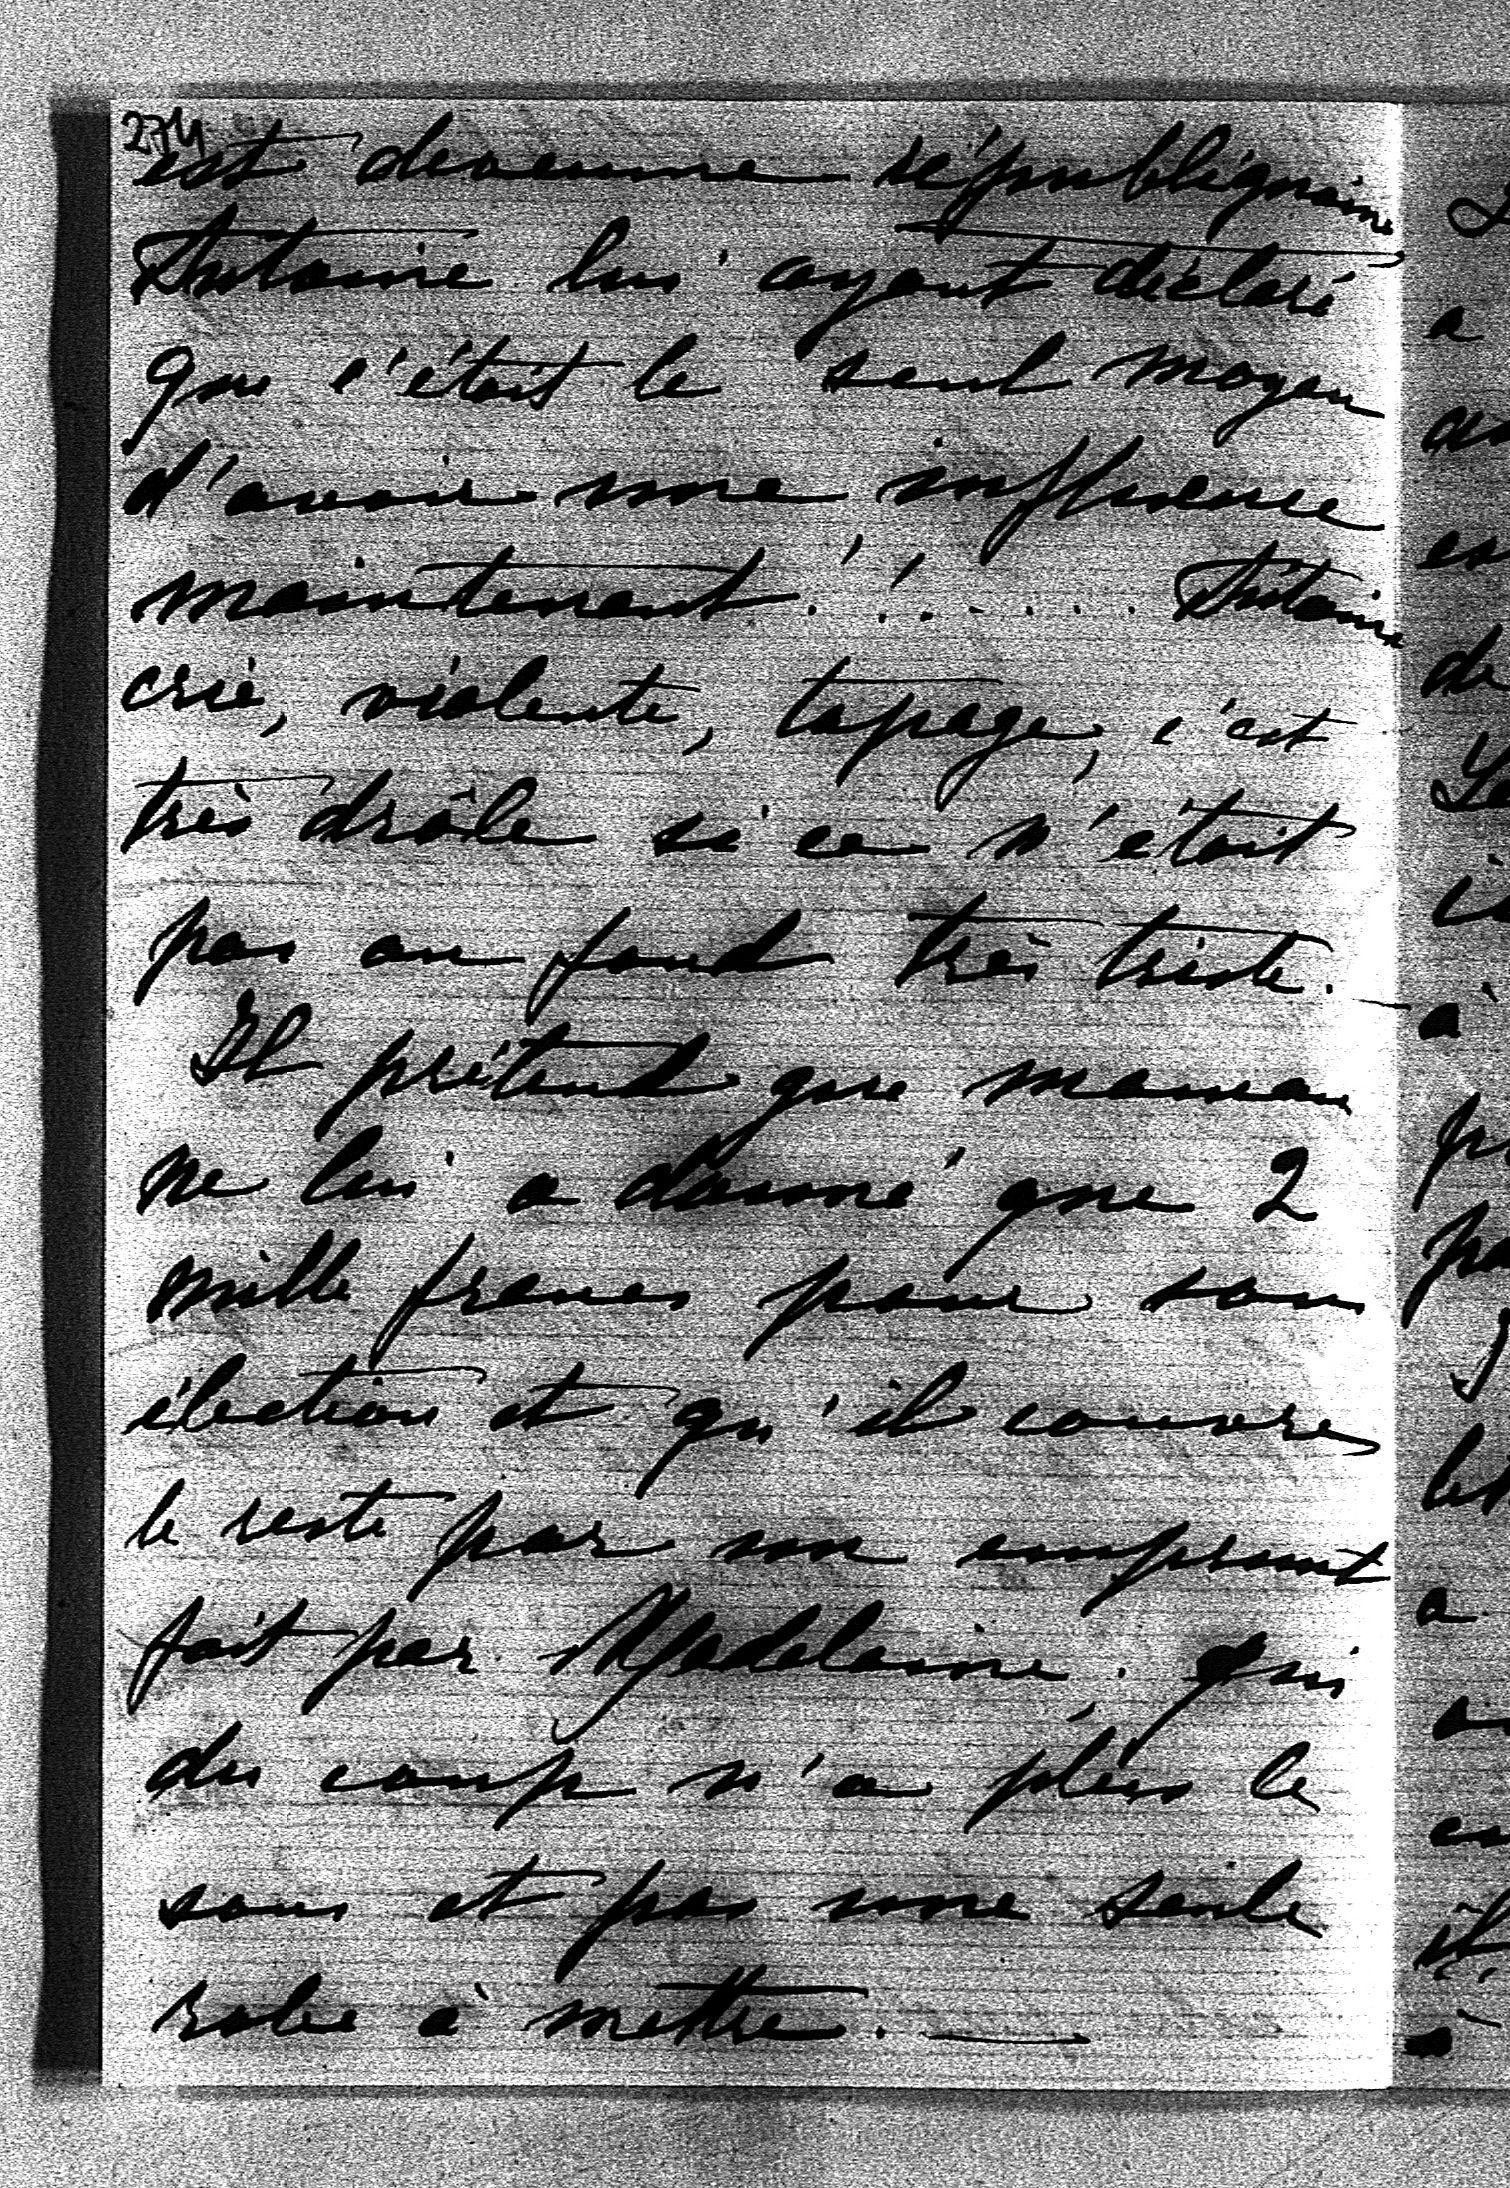 274
est devenue républiquaine
Antoine lui ayant déclaré
que c'était le seul moyen
d'avoir une influence
maintenant!!..... Antoine
crie, violente, tapage, c'est
très drôle si ce n'était
pas au fond très triste. —
Il prétend que maman
ne lui a donné que 2
mille francs pour son
élection et qu'il couvre
le reste par un emprunt
fait par Madelaine, qui
du coup n'a plus le
sous et pas une seule
robe à mettre. —